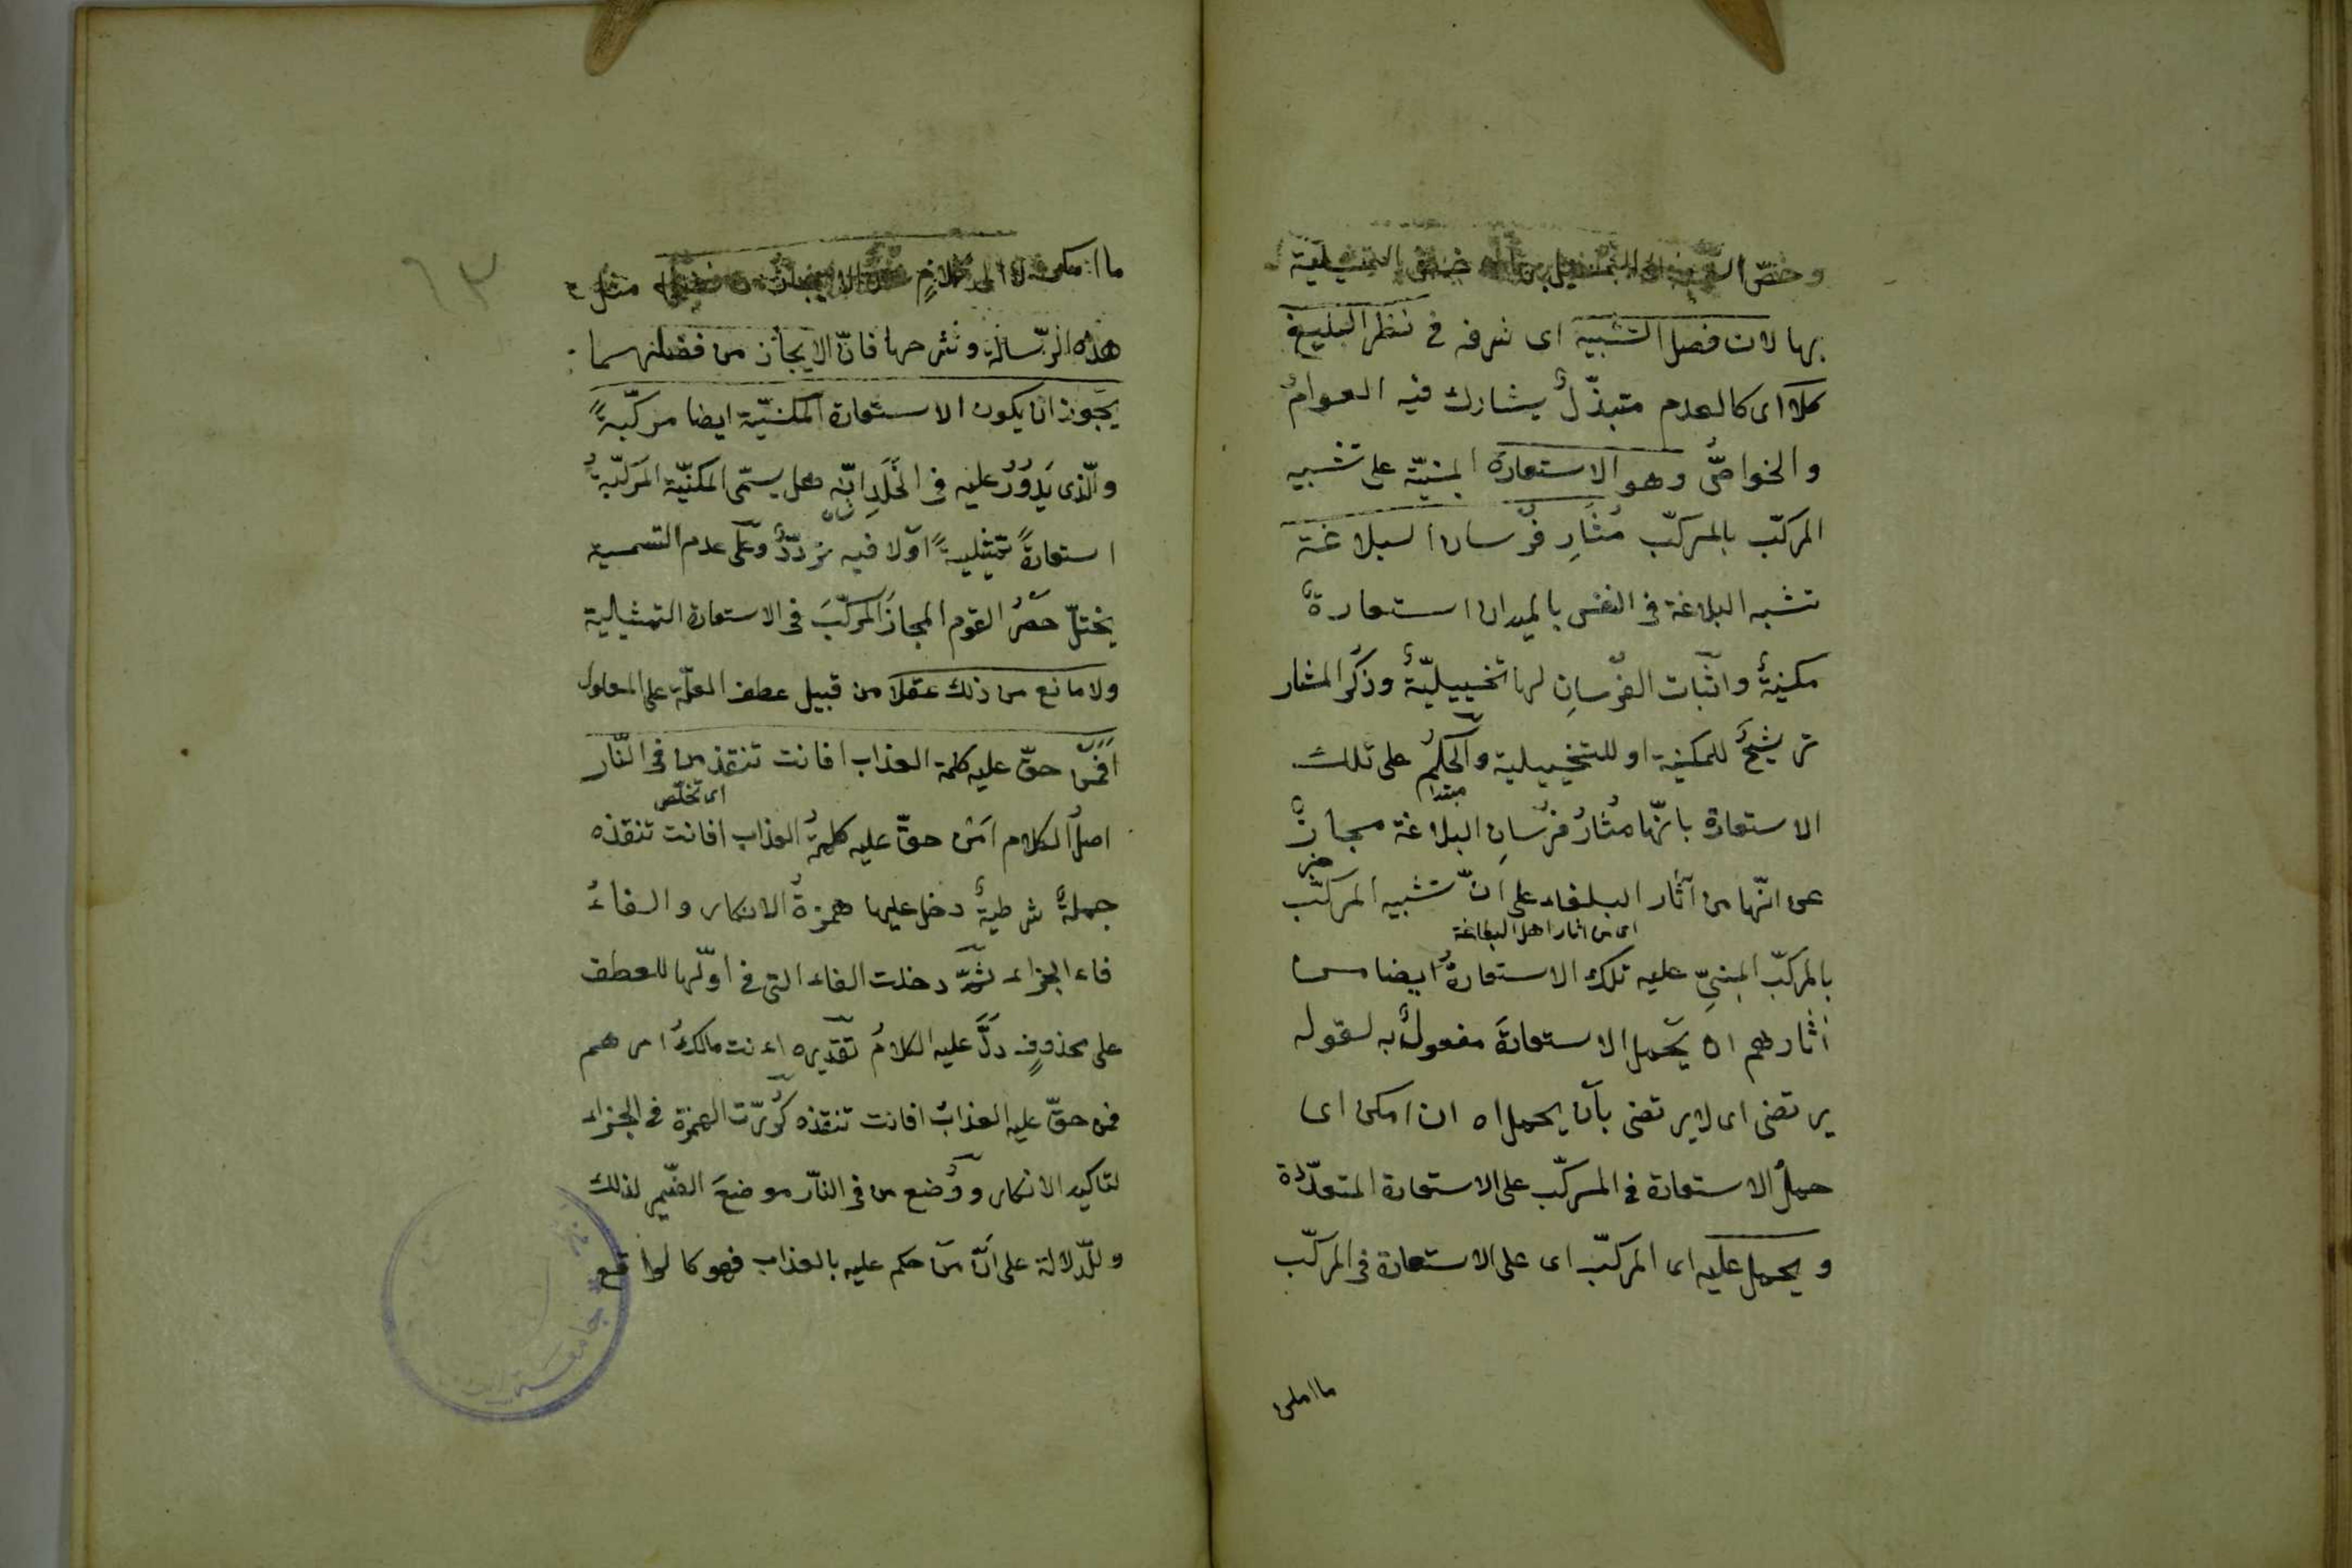 وخصّ التمثيلية
بها لان فصل التشبيه اى نرفه فى نظر البليغ
كلا اى كالعدم متبذّلٌ يشارك فيه العوامُ
والخواصُّ وهو الاستعارة المبنيّة على تشبيه
المركّب بالمركّب مُثَارِ فُرْسان البلاغة
تشبه البلاغة فى النفس بالميدان استعارةٌ
مكنيةٌ واثبات الفُرْسانِ لها تخييليّةٌ وذكر المثار
ترشيحٌ للمكنية او للتخييلية والحكمُ على تلك
مبتدا
الاستعارة بانّها مُثارُ فرْسانِ البلاغة مجازٌ
خبر
عن انّها من آثار البلغاء على انّ تشبيه المركّب
اى من اثار اهل البلاغة
بالمركّب المبنىِّ عليه تلك الاستعارةُ ايضا من
آثارهم ان يحمل الاستعارةَ مفعولٌ به لقوله
يرتضى اى لا يرتضى بان يحمل اه ان امكن اى
حملُ الاستعارة فى المركّب على الاستعارة المتعدّدة
ويحمل عليه اى المركّب اى على الاستعارة فى المركّب
ما املى
ما امكن مثل
هذه الرّسالة وشرحها فانّ الايجاز من فضلهما
يجوز ان يكون الاستعارة المكنيّة ايضا مركّبةً
والّذى يَدُورُ عليه فى الخَلَدِ انّه هل يسمّى المكنيّة المركّبةُ
استعارةً تمثيليةً اوّلا فيه تردّدٌ وعلى عدم التسمية
يختلّ حصرُ القوم المجازَ المركّبَ فى الاستعارة التمثيلية
ولا مانع من ذلك عقلا من قبيل عطف العلّة على المعلول
افمن حقّ عليه كلمة العذاب افانت تنقذ من فى النّار
اى تخلّص
اصلُ الكلام امَن حقّ عليه كلمةُ العذاب افانت تنقذه
جملةٌ شرطيةٌ دخل عليها همزةُ الانكار والفاءُ
فاء الجزاء ثمّ دخلت الفاء التى فى اوّلها للعطف
على محذوفٍ دلَّ عليه الكلامُ تقديره اءنت مالكُ امرهم
فمن حقّ عليه العذابُ افانت تنقذه كُرّرت الهمزة فى الجزاء
لتاكيد الانكار ووُضع من فى النّار موضعَ الضّمير لذلك
وللّدلالة على انّ من حكم عليه بالعذاب فهو كالواقع
٦٣
جامعة